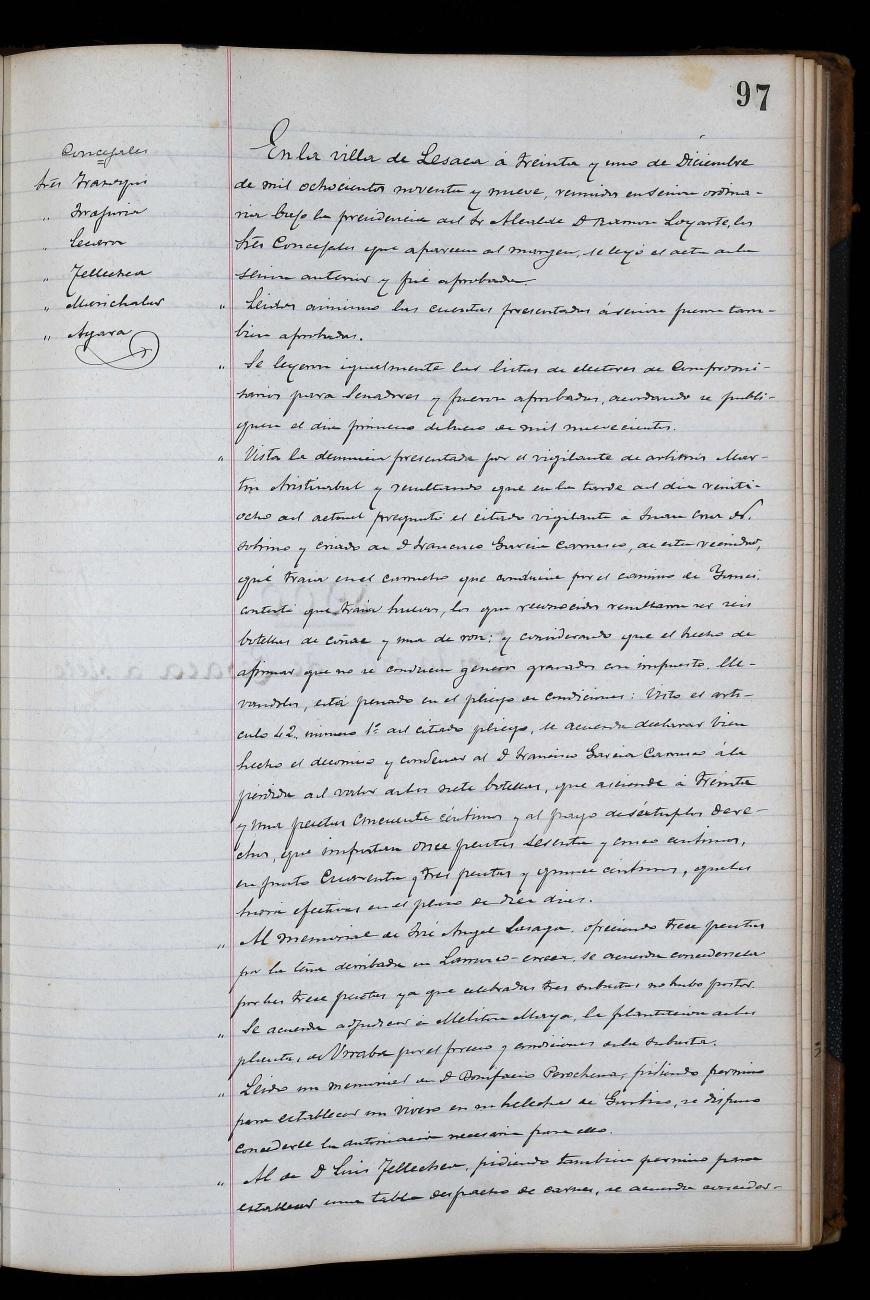 97
Concejales
Sres Franqui
" Irazuria
" Lecura
" Tellechea
" Marichalar
" Ayara
En la villa de Lesaca á treinta y uno de Diciembre
de mil ochocientos noventa y nueve, reunidos en sesion ordina-
ria bajo la presidencia del Sr Alcalde D Ramon Loyarte, los
Sres Concejales que aparecen al margen, se leyó el acta de la
sesion anterior y fué aprobada.
" Leidas asimismo las cuentas presentadas á sesion fueron tam-
bien aprobadas.
" Se leyeron igualmente las listas de electores de Compromi-
sarios para Senadores y fueron aprobadas, acordando se publi-
quen el dia primero de Enero de mil nuevecientos.
" Vista la denuncia presentada por el vigilante de arbitrios Mar-
tin Aristirabal y resultando que en la tarde del dia veinti-
ocho del actual preguntó el citado vigilante á Juan Cruz N.
sobrino y criado de D Francisco Garcia Carrasco, de esta vecindad,
qué traia en el carrucho que conducia por el camino de Yanci,
contestó que traia huevos, los que reconocidos resultaron ser seis
botellas de coñac y una de ron; y considerando que el hecho de
afirmar que no se conducen géneros gravados con impuesto, lle-
vandolos, está penado en el pliego de condiciones: Visto el artí-
culo 42, número 1º del citado pliego, se acuerda declarar bien
hecho el decomiso y condenar al D Francisco Garcia Carrasco á la
pérdida del valor de las siete botellas, que asciende á treinta
y una pesetas cincuenta céntimos y al pago de séxtuplos dere-
chos, que importan once pesetas sesenta y cinco céntimos,
en junto cuarenta y tres pesetas y quince céntimos, que las
hará efectivas en el plazo de diez dias.
" Al memorial de José Angel Lasaga, ofreciendo trece pesetas
por la leña derribada en se acuerda concedersela
por las trece pesetas ya que celebradas tres subastas no hubo postor.
" Se acuerda adjudicar á Meliton Maya, la plantacion de las
plantas de por el precio y condiciones de la subasta.
" Leido un memorial de D Bonifacio Perochena, pidiendo permiso
para establecer un vivero en un helechal de se dispuso
concederle la autorizacion necesaria para ello.
" Al de D Luis Tellechea, pidiendo tambien permiso para
establecer una tabla despacho de carnes, se acuerda conceder-